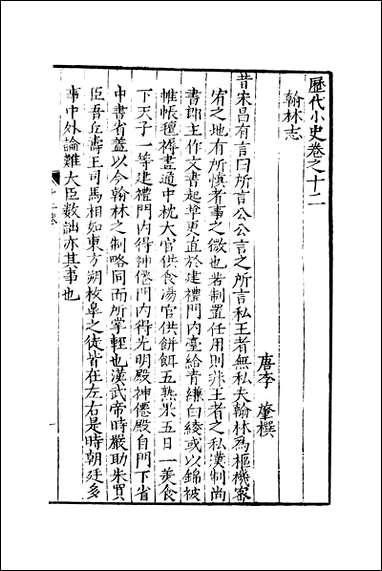 歷代小史卷之十二
翰林志
唐李 肇撰
昔宋昌有言曰所言公公言之所言私王者無私夫翰林為樞機宻
宥之地有所慎者事之微也若制置任用則非王者之私漢制尚
書郎主作文書起草更直於建禮門內臺給青縑白綾或以錦被
帷帳氊褥畫通中枕大官供食湯官供餅餌五熟果五日一羙食
下天子一等建禮門內得神僊門內得光明殿神僊殿自門下省
中書省蓋以今翰林之制略同而所掌輕也漢武帝時嚴助朱買
臣吾丘壽王司馬相如東方朔枚皋之徒皆在左右是時朝廷多
事中外論難大臣數詘亦其事也